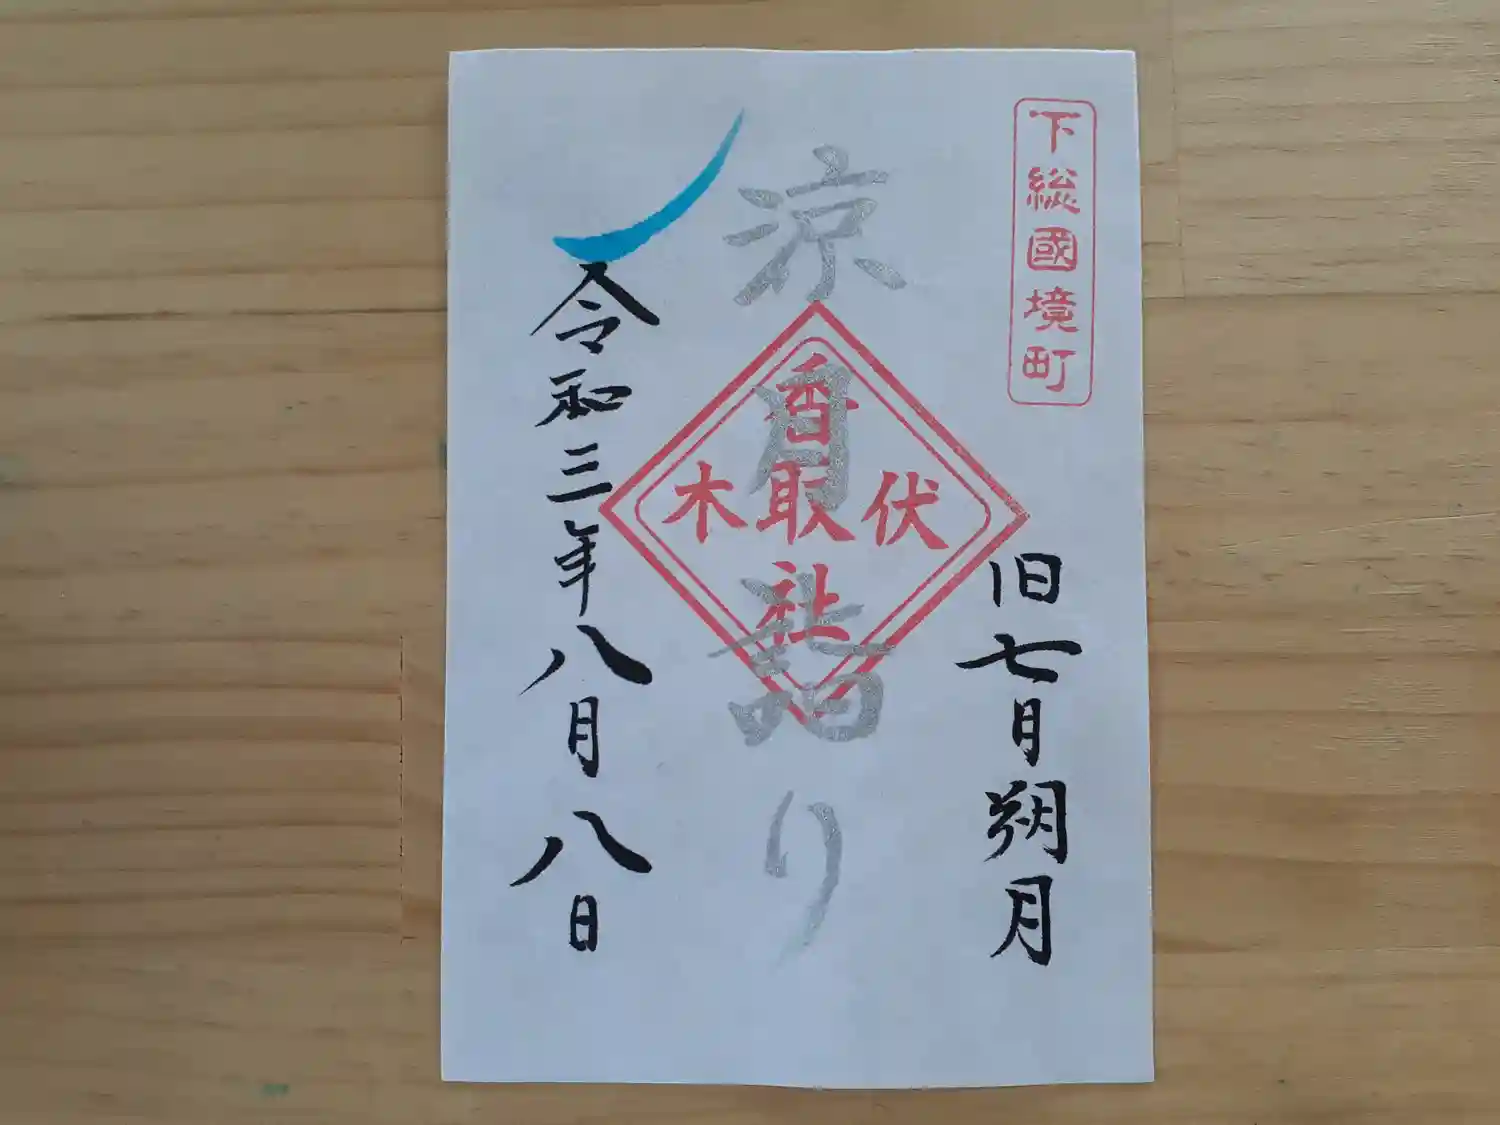 下総國境町
旧七月朔月
涼月詣り
香取社
伏木
令和三年八月八日